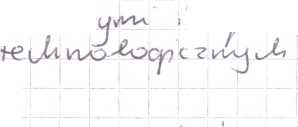 ymi
technologicznym